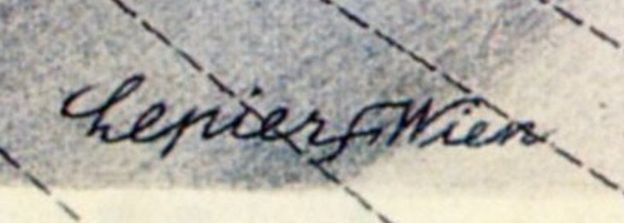 Lepier, Wien